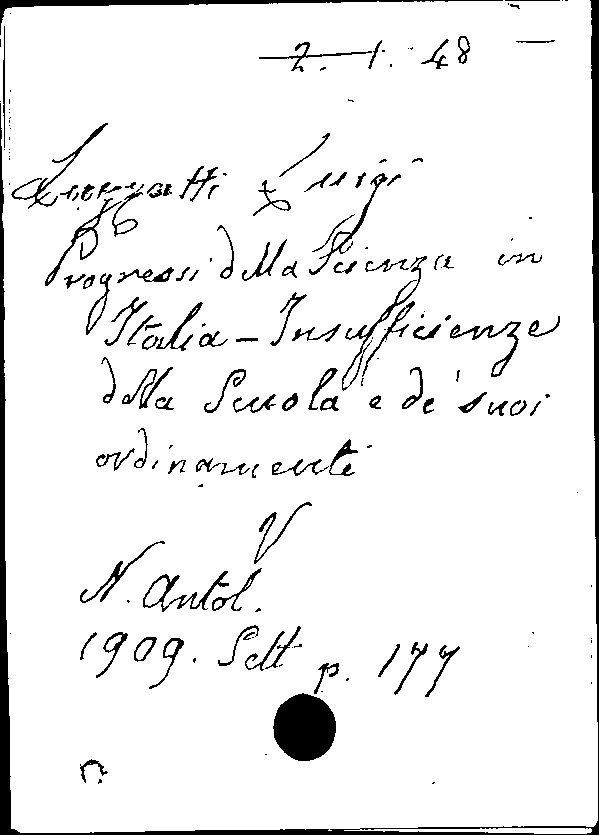 2. 1. 48
Luzzatti Luigi
Progressi della Scienza in
Italia - Insufficienze
della Scuola e de' suoi
ordinamenti
V
N. Antol.
1909. Sett p. 177